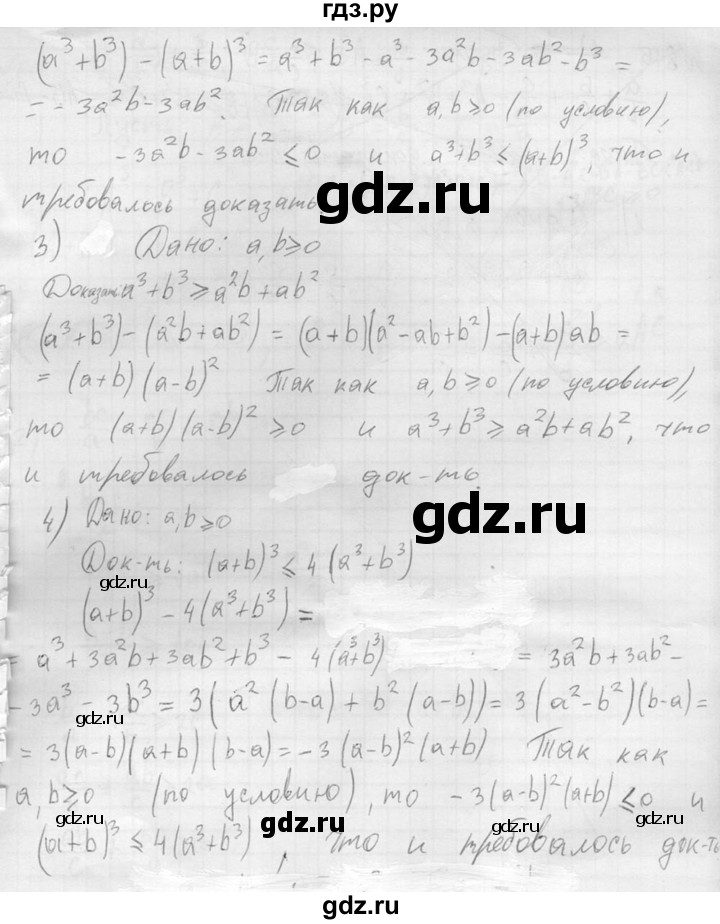 гдз.ру
(a³+b³) – (a+b)³ = a³+b³-a³-3a²b-3ab²-b³ =
= -3a²b-3ab². Так как a,b≥0 (по условию),
то -3a²b-3ab² ≤0 и a³+b³ ≤ (a+b)³, что и
требовалось доказать
gdz.ru
3) Дано: a,b≥0
Доказать: a³+b³ ≥ a²b+ab²
(a³+b³)-(a²b+ab²) = (a+b)(a²-ab+b²)-(a+b)ab =
= (a+b)(a-b)² Так как a,b≥0 (по условию),
то (a+b)(a-b)² ≥0 и a³+b³ ≥ a²b+ab², что
и требовалось док-ть.
gdz.ru
4) Дано: a,b≥0
Док-ть: (a+b)³ ≤ 4(a³+b³)
gdz.ru
gdz.ru
(a+b)³ - 4(a³+b³) =
= a³+3a²b+3ab²+b³ - 4(a³+b³) = 3a²b+3ab²-
-3a³-3b³ = 3(a²(b-a)+b²(a-b)) = 3(a²-b²)(b-a) =
= 3(a-b)(a+b)(b-a) = -3(a-b)²(a+b) Так как
a,b≥0 (по условию), то -3(a-b)²(a+b) ≤0 и
gdz.ru
gdz.ru
gdz.ru
(a+b)³ ≤ 4(a³+b³), что и требовалось док-ть
gdz.ru